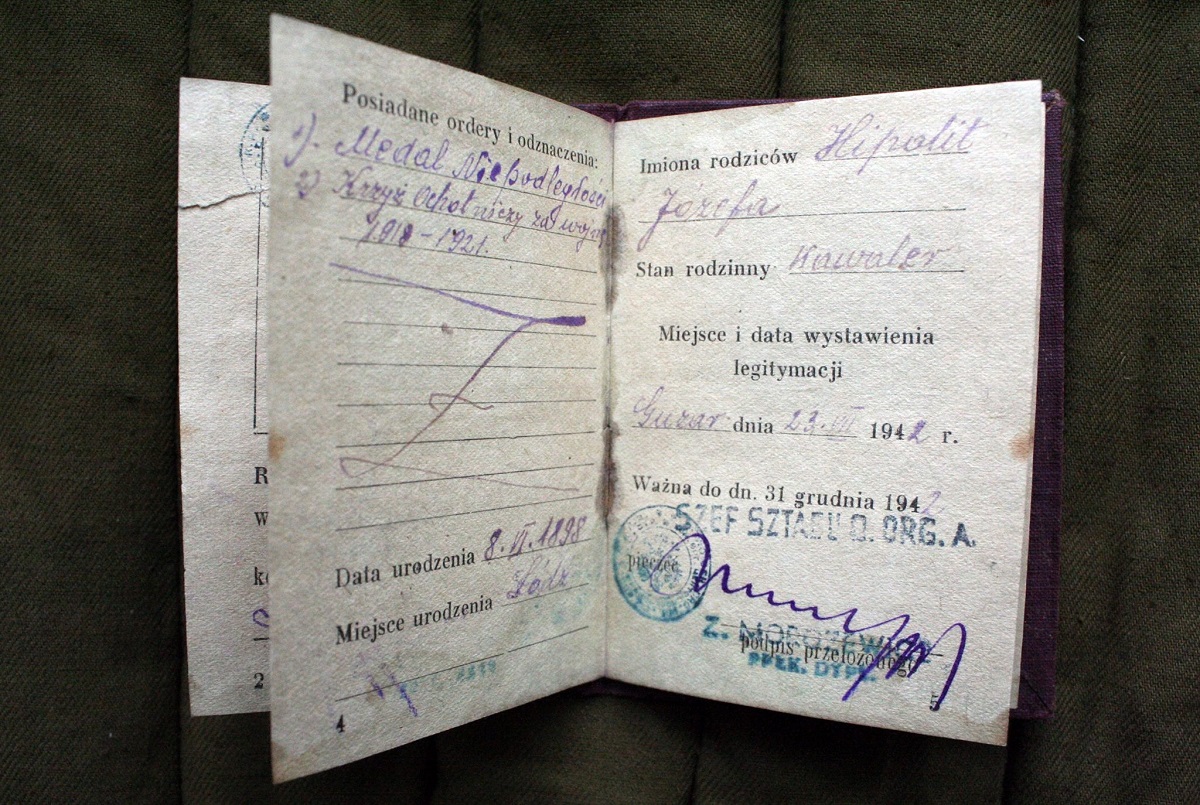 Posiadane ordery i odznaczenia:
1). Medal Niepodległości
2) Krzyż Ochotniczy za wojnę
1918-1921.
Data urodzenia 8.VI.1898
Miejsce urodzenia Łódź
4
Imiona rodziców Hipolit
Józefa
Stan rodzinny Kawaler
Miejsce i data wystawienia
legitymacji
Guzar dnia 23.VII 1942 r.
Ważna do dn. 31 grudnia 1942
SZEF SZTABU O. ORG. A.
pieczęć
Z.
podpis przełożonego
PPŁK. DYPL.
5
R
w
2